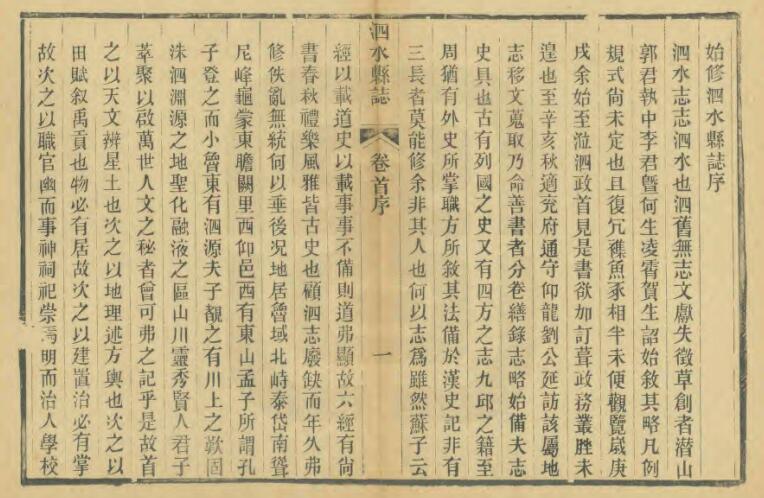 始修泗水縣誌序
泗水志志泗水也泗舊無志文獻失徵草創者潜山
郭君執中李君曁何生凌霄賀生詔始敘其略凡例
規式尚未定也且復冗襍魚豕相半未便觀覽嵗庚
戌余始至涖泗政首見是書欲加訂葺政務叢脞未
遑也至辛亥秋適兖府通守仰龍劉公延訪該屬地
志移文蒐取乃命善書者分卷繕錄志略始備夫志
史具也古有列國之史又有四方之志九邱之籍至
周猶有外史所掌職方所敘其法備於漢史記非有
三長者莫能修余非其人也何以志爲雖然蘇子云
泗水縣誌
卷首序
一
經以載道史以載事事不備則道弗顯故六經有尙
書春秋禮樂風雅皆古史也顧泗志廢缺而年久弗
修佚亂無統何以垂後况地居魯域北峙泰岱南聳
尼峰龜蒙東瞻闕里西仰邑西有東山孟子所謂孔
子登之而小魯東有泗源夫子覩之有川上之歎固
洙泗淵源之地聖化融液之區山川靈秀賢人君子
萃聚以啟萬世人文之秘者曾可弗之記乎是故首
之以天文辨星土也次之以地理述方輿也次之以
田賦叙禹貢也物必有居故次之以建置治必有掌
故次之以職官幽而事神祠祀崇焉明而治人學校